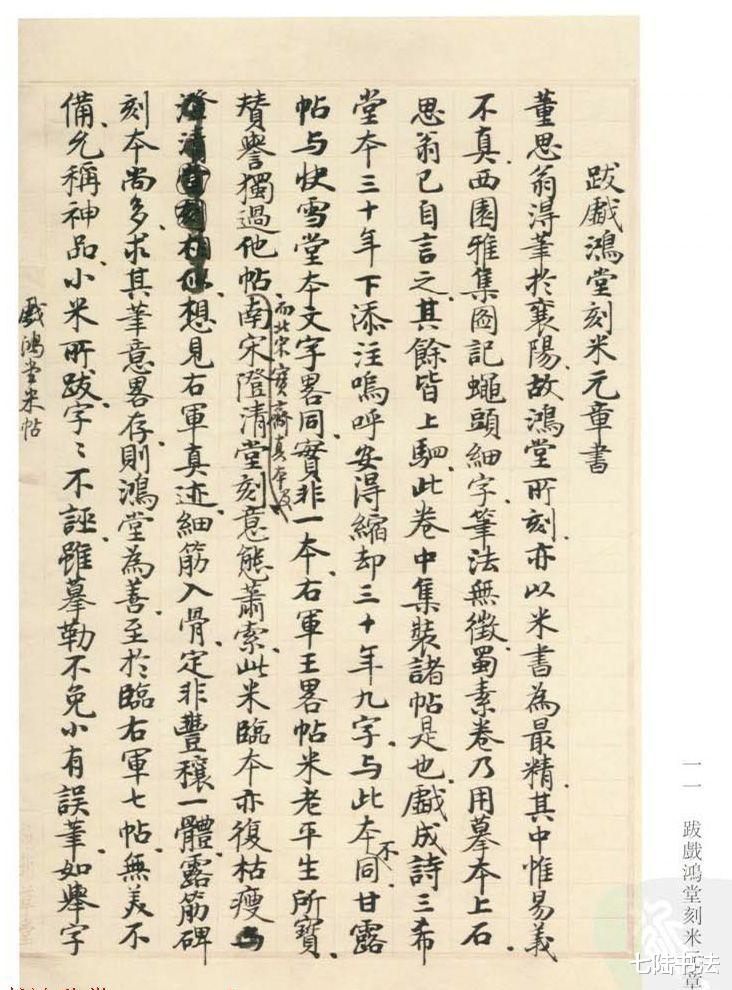 跋戲鴻堂刻米元章書
董思翁得筆於襄陽故鴻堂所刻亦以米書為最精其中惟易義
不真西園雅集圖記蠅頭細字筆法無徵蜀素卷乃用摹本上石
思翁已自言之其餘皆上駟此卷中集裝諸帖是也戲成詩三希
堂本三十年下添注嗚呼安得縮却三十年九字与此本不同甘露
帖与快雪堂本文字畧同實非一本右軍王畧帖米老平生所寶
贊譽獨過他帖而北宋寶齋真本及南宋澄清堂刻意態蕭索此米臨本亦復枯瘦
想見右軍真迹細筋入骨定非豐穠一體露筋碑
刻本尚多求其筆意畧存則鴻堂為善至於臨右軍七帖無美不
備允稱神品小米所跋字〻不誣雖摹勒不免小有誤筆如舉字
戲鴻堂米帖
一一 跋戲鴻堂刻米元章
七陆书法